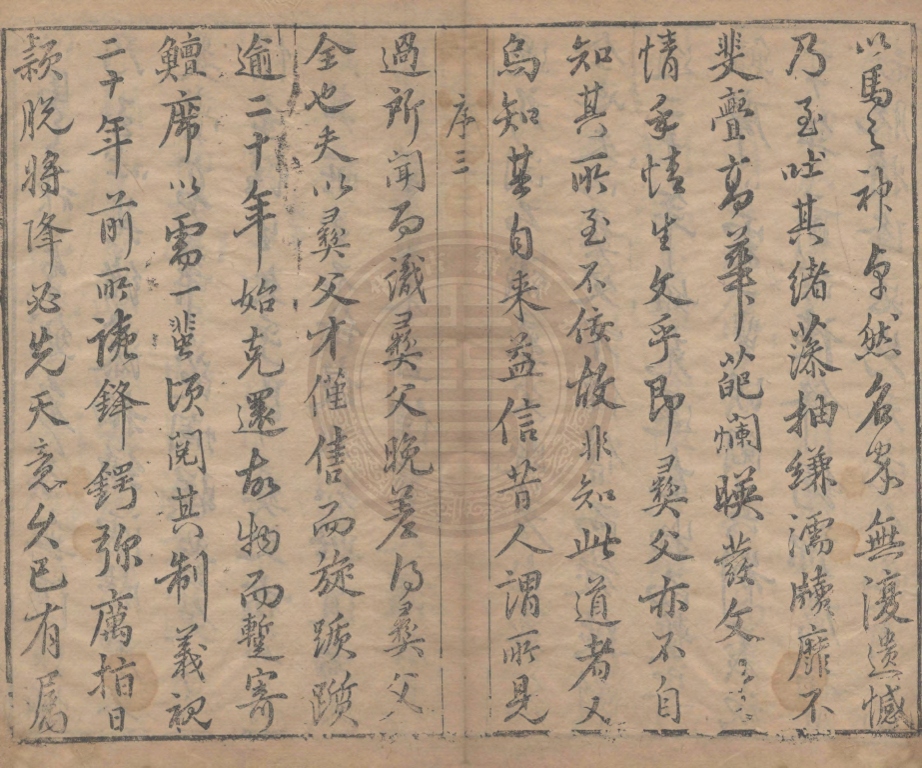 以馬之神卓然名家無復遺憾
乃至吐其緒藻抽縑濡牘靡不
斐亹葛華葩爛暎發文
情耶情生文乎即彞父亦不自
知其所至不佞故非知此道者又
烏知其自来益信昔人謂所見
序三
過所聞而識彞父晚差得彞父
全也夫以彞父才僅售而旋躓躓
逾二十年始克還故物而蹔寄
鱣席以需一蜚頃閲其制義視
二十年前所謭鋒鍔弥厲拍日
頴脱將降必先天意久已有屬